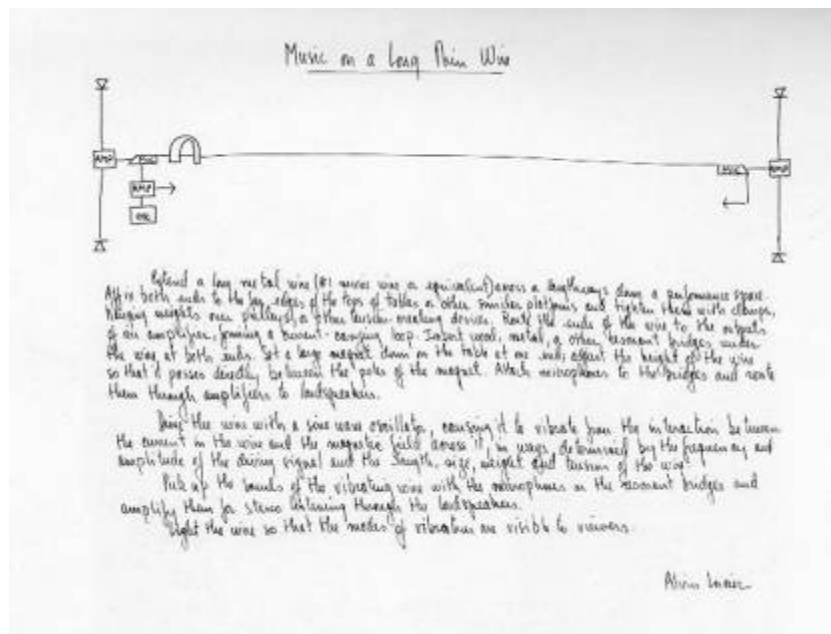 Music on a Long Thin Wire
AMP
MIC
AMP
OSC
MIC
AMP
Extend a long metal wire (#1 music wire or equivalent) across or lengthways along a performance space.
Affix both ends to the far edges of the tops of tables or other similar platforms and tighten them with clamps,
hanging weights over pulleys, or other tension-creating devices. Route the ends of the wire to the outputs
of an amplifier, forming a current-carrying loop. Insert wood, metal, or other resonant bridges under
the wire at both ends. Set a large magnet down on the table at one end, adjust the height of the wire
so that it passes directly between the poles of the magnet. Attach microphones to the bridges and route
them through amplifiers to loudspeakers.
Drive the wire with a sine wave oscillator, causing it to vibrate from the interaction between
the current in the wire and the magnetic field across it, in ways determined by the frequency and
amplitude of the driving signal and the length, size, weight and tension of the wire.
Pick up the sounds of the vibrating wire with the microphones on the resonant bridges and
amplify them for stereo listening through the loudspeakers.
Light the wire so that the modes of vibration are visible to viewers.
Alvin Lucier